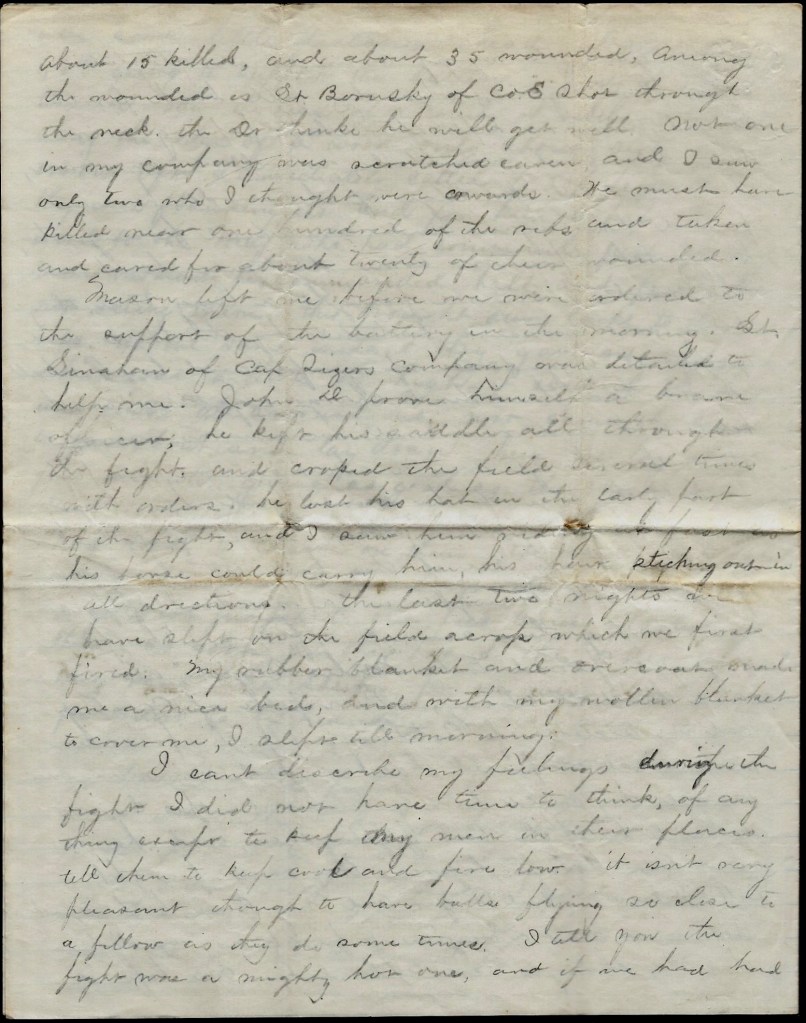 about 15 killed, and about 35 wounded, Among
the wounded is Lt Borusky of Co. E shot through
the neck. the Dr thinks he will get well Not one
in my company was scratched eaven and I saw
only two who I thought were cowards. We must have
killed near one hundred of the rebs and taken
and cared for about twenty of their wounded.
Mason left me before we were ordered to
the support of the battery in the morning. Lt.
of Cap company was detailed to
help me. John D prove himself a brave
officer, he kept his saddle all through
the fight, and crosed the field several times
with orders. he lost his hat in the early part
of the fight, and I saw him riding as fast as
his horse could carry him, his hair sticking out in
all directions. the last two nights we
have slept on the field across which we first
fired. My rubber blanket and overcoat made
me a nice bed, and with my wollen blanket
to cover me, I slept till morning.
I cant discribe my feelings during the
fight I did not have time to think, of any
thing except to keep my men in their places.
tell them to keep cool and fire low it isn't very
pleasant though to have balls flying so close to
a fellow as they do some times. I tell you the
fight was a mighty hot one, and if we had had